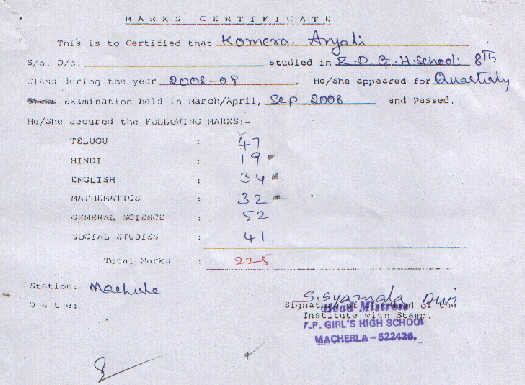 MARKS CERTIFICATE
This is to Certified that Komera Anjali
S/o. D/o. studied in Z.P.G.H.School 8th
Class during the year 2008-09 He/She appeared for Quarterly
Examination held in March/April, Sep 2008 and Passed.
He/She secured the FOLLOWING MARKS:-
TELUGU : 47
HINDI : 19
ENGLISH : 34
MATHEMATICS : 32
GENERAL SCIENCE : 52
SOCIAL STUDIES : 41
Total Marks : 225
Station:
Date:
S. Syamala Devi
Signature of Head of the
Head Mistress
Institute with Stamp.
Z.P. GIRL'S HIGH SCHOOL
MACHERLA - 522426.